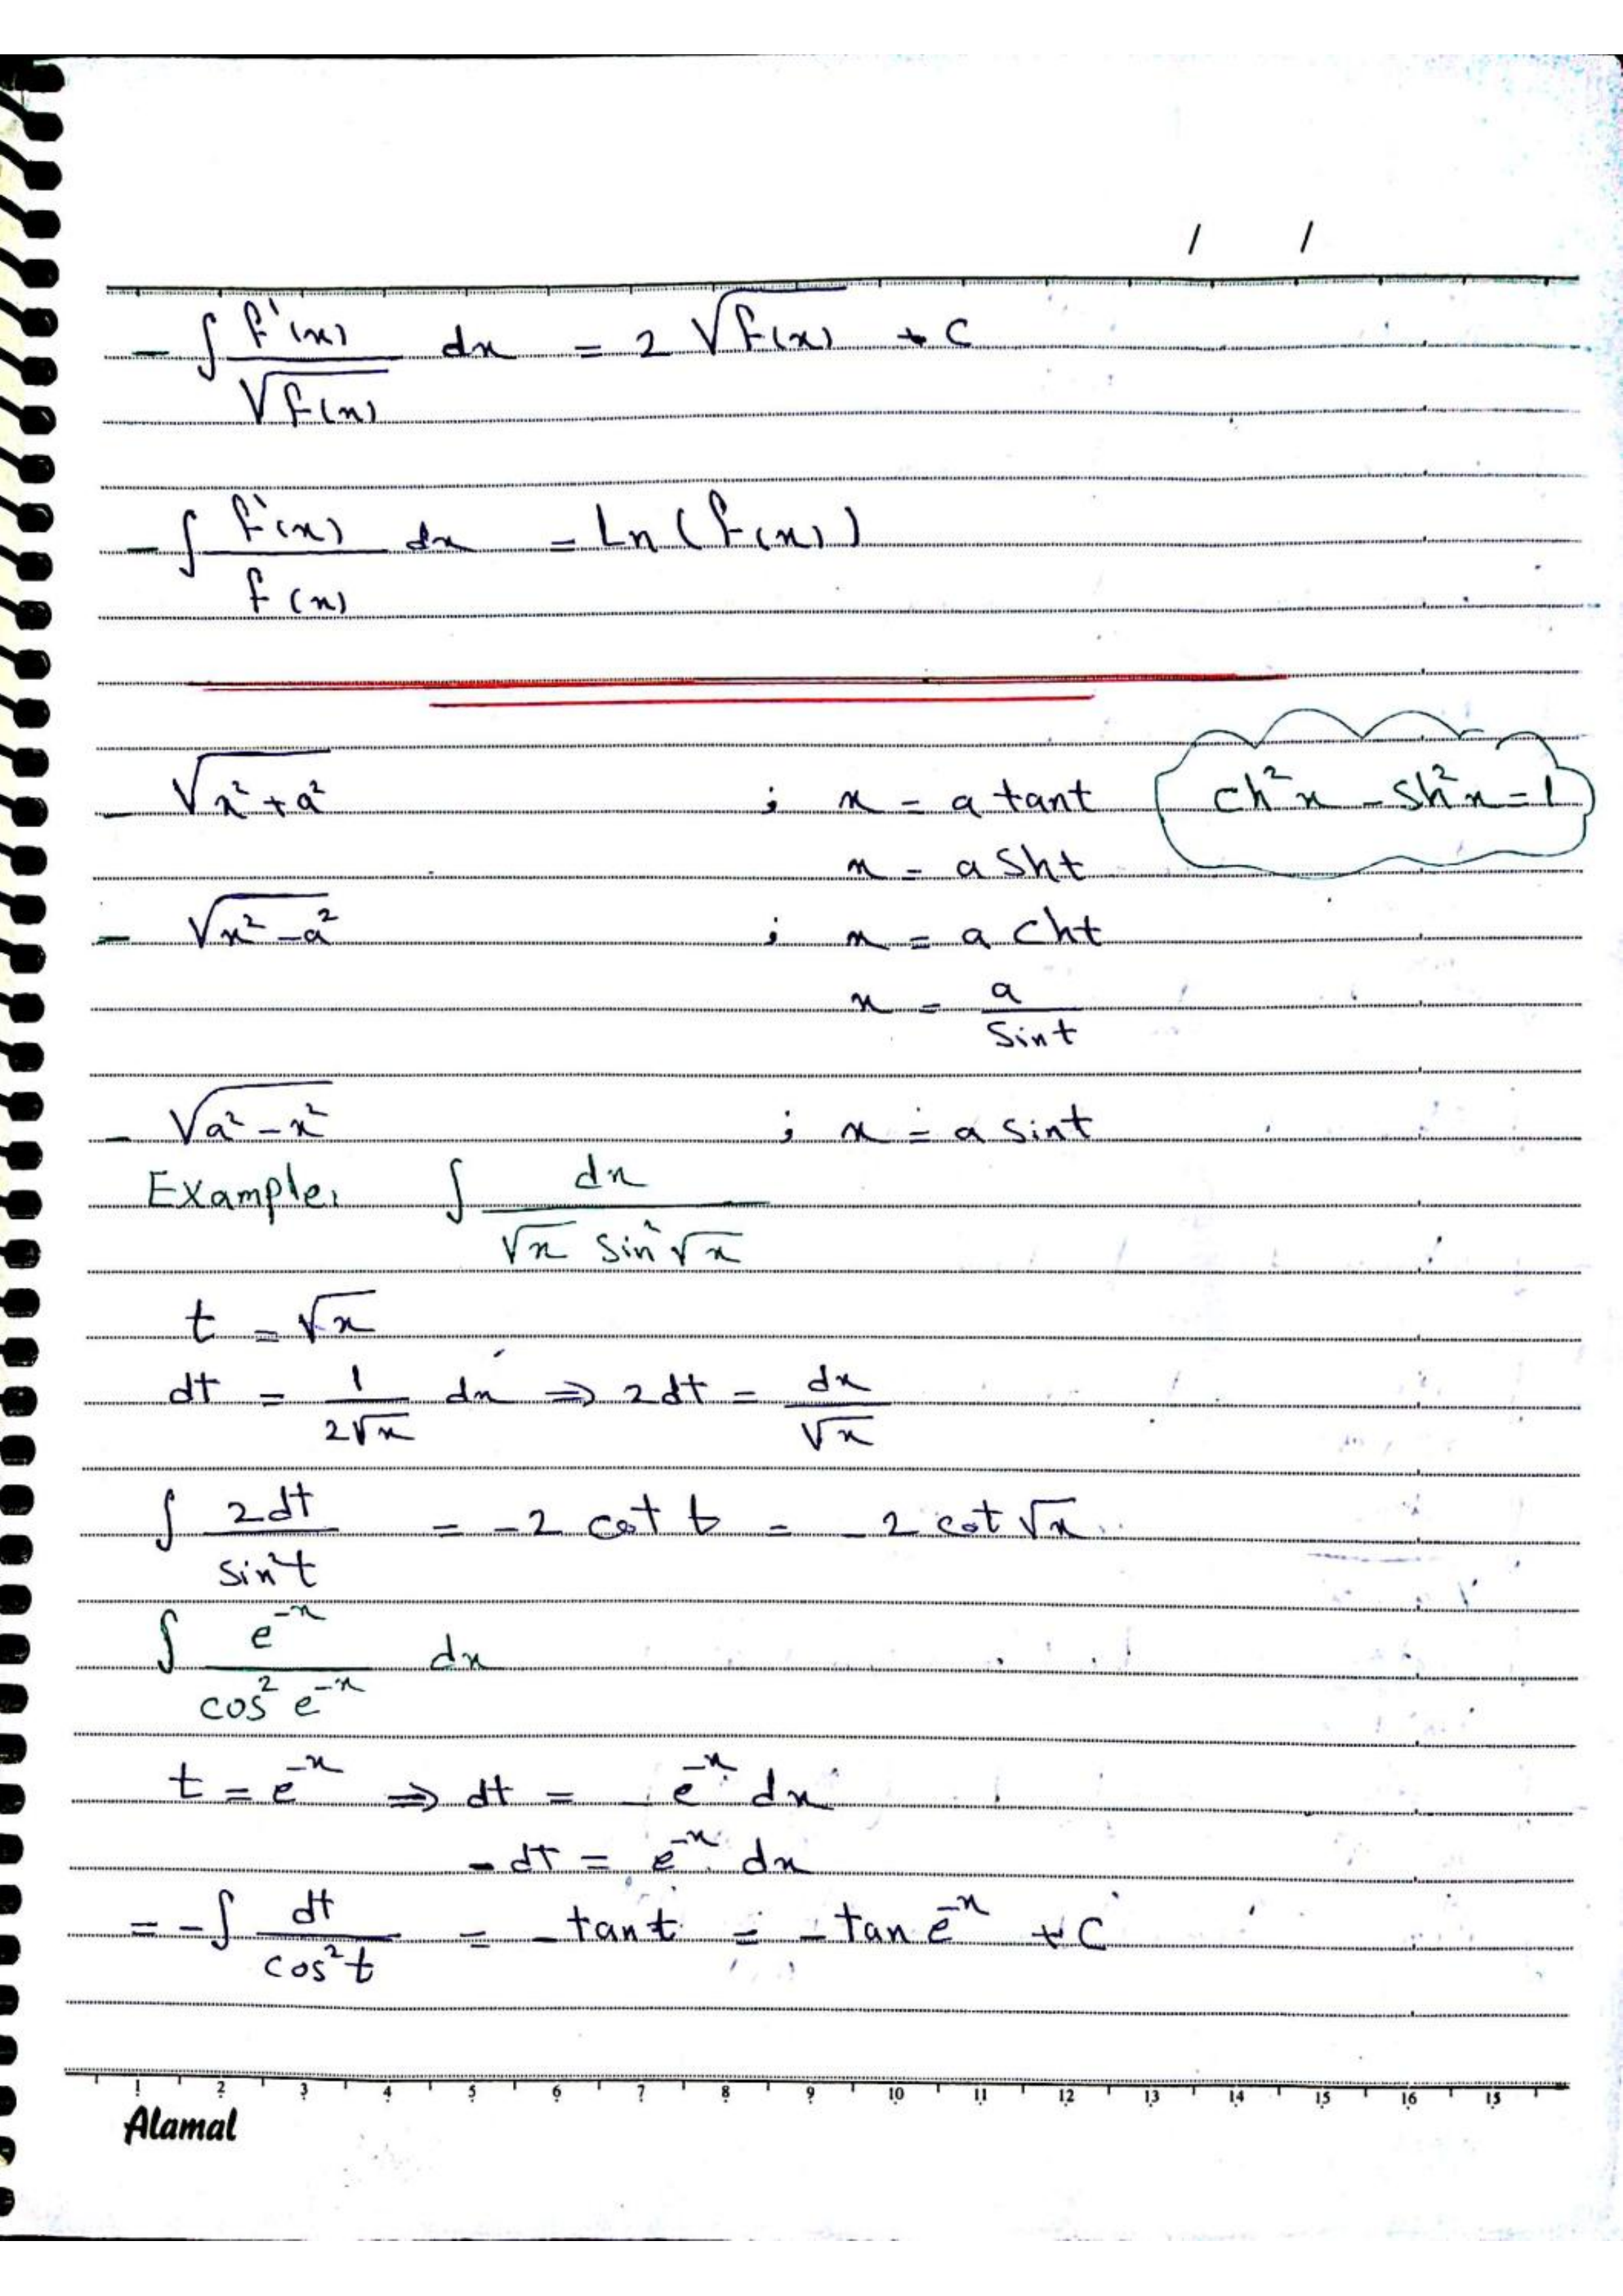 / /
- ∫ f'(x) / √f(x) dx = 2 √f(x) + C
- ∫ f'(x) / f(x) dx = Ln (f(x))
- √x² + a² ; x = a tant ch²x - sh²x = 1
x = a sht
- √x² - a² ; x = a cht
x = a / sint
- √a² - x² ; x = a sint
Example: ∫ dx / √x sin²√x
t = √x
dt = 1 / 2√x dx ⇒ 2dt = dx / √x
∫ 2dt / sin²t = -2 cot t = -2 cot √x
∫ e⁻ˣ / cos² e⁻ˣ dx
t = e⁻ˣ ⇒ dt = - e⁻ˣ dx
- dt = e⁻ˣ dx
= - ∫ dt / cos²t = - tant = - tan e⁻ˣ + C
1 2 3 4 5 6 7 8 9 10 11 12 13 14 15 16 15
Alamal